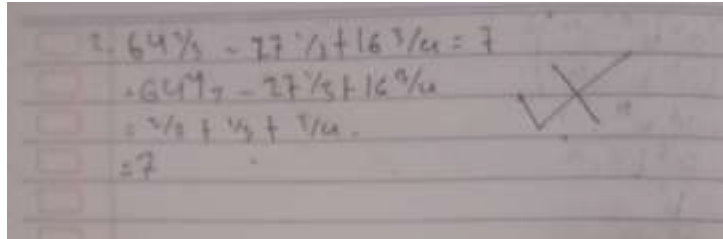 2. 64 ⅔ - 27 ⅓ + 16 ¾ = 7
= 64 ⅔ - 27 ⅓ + 16 ¾
= ⅔ + ⅓ + ¾.
= 7